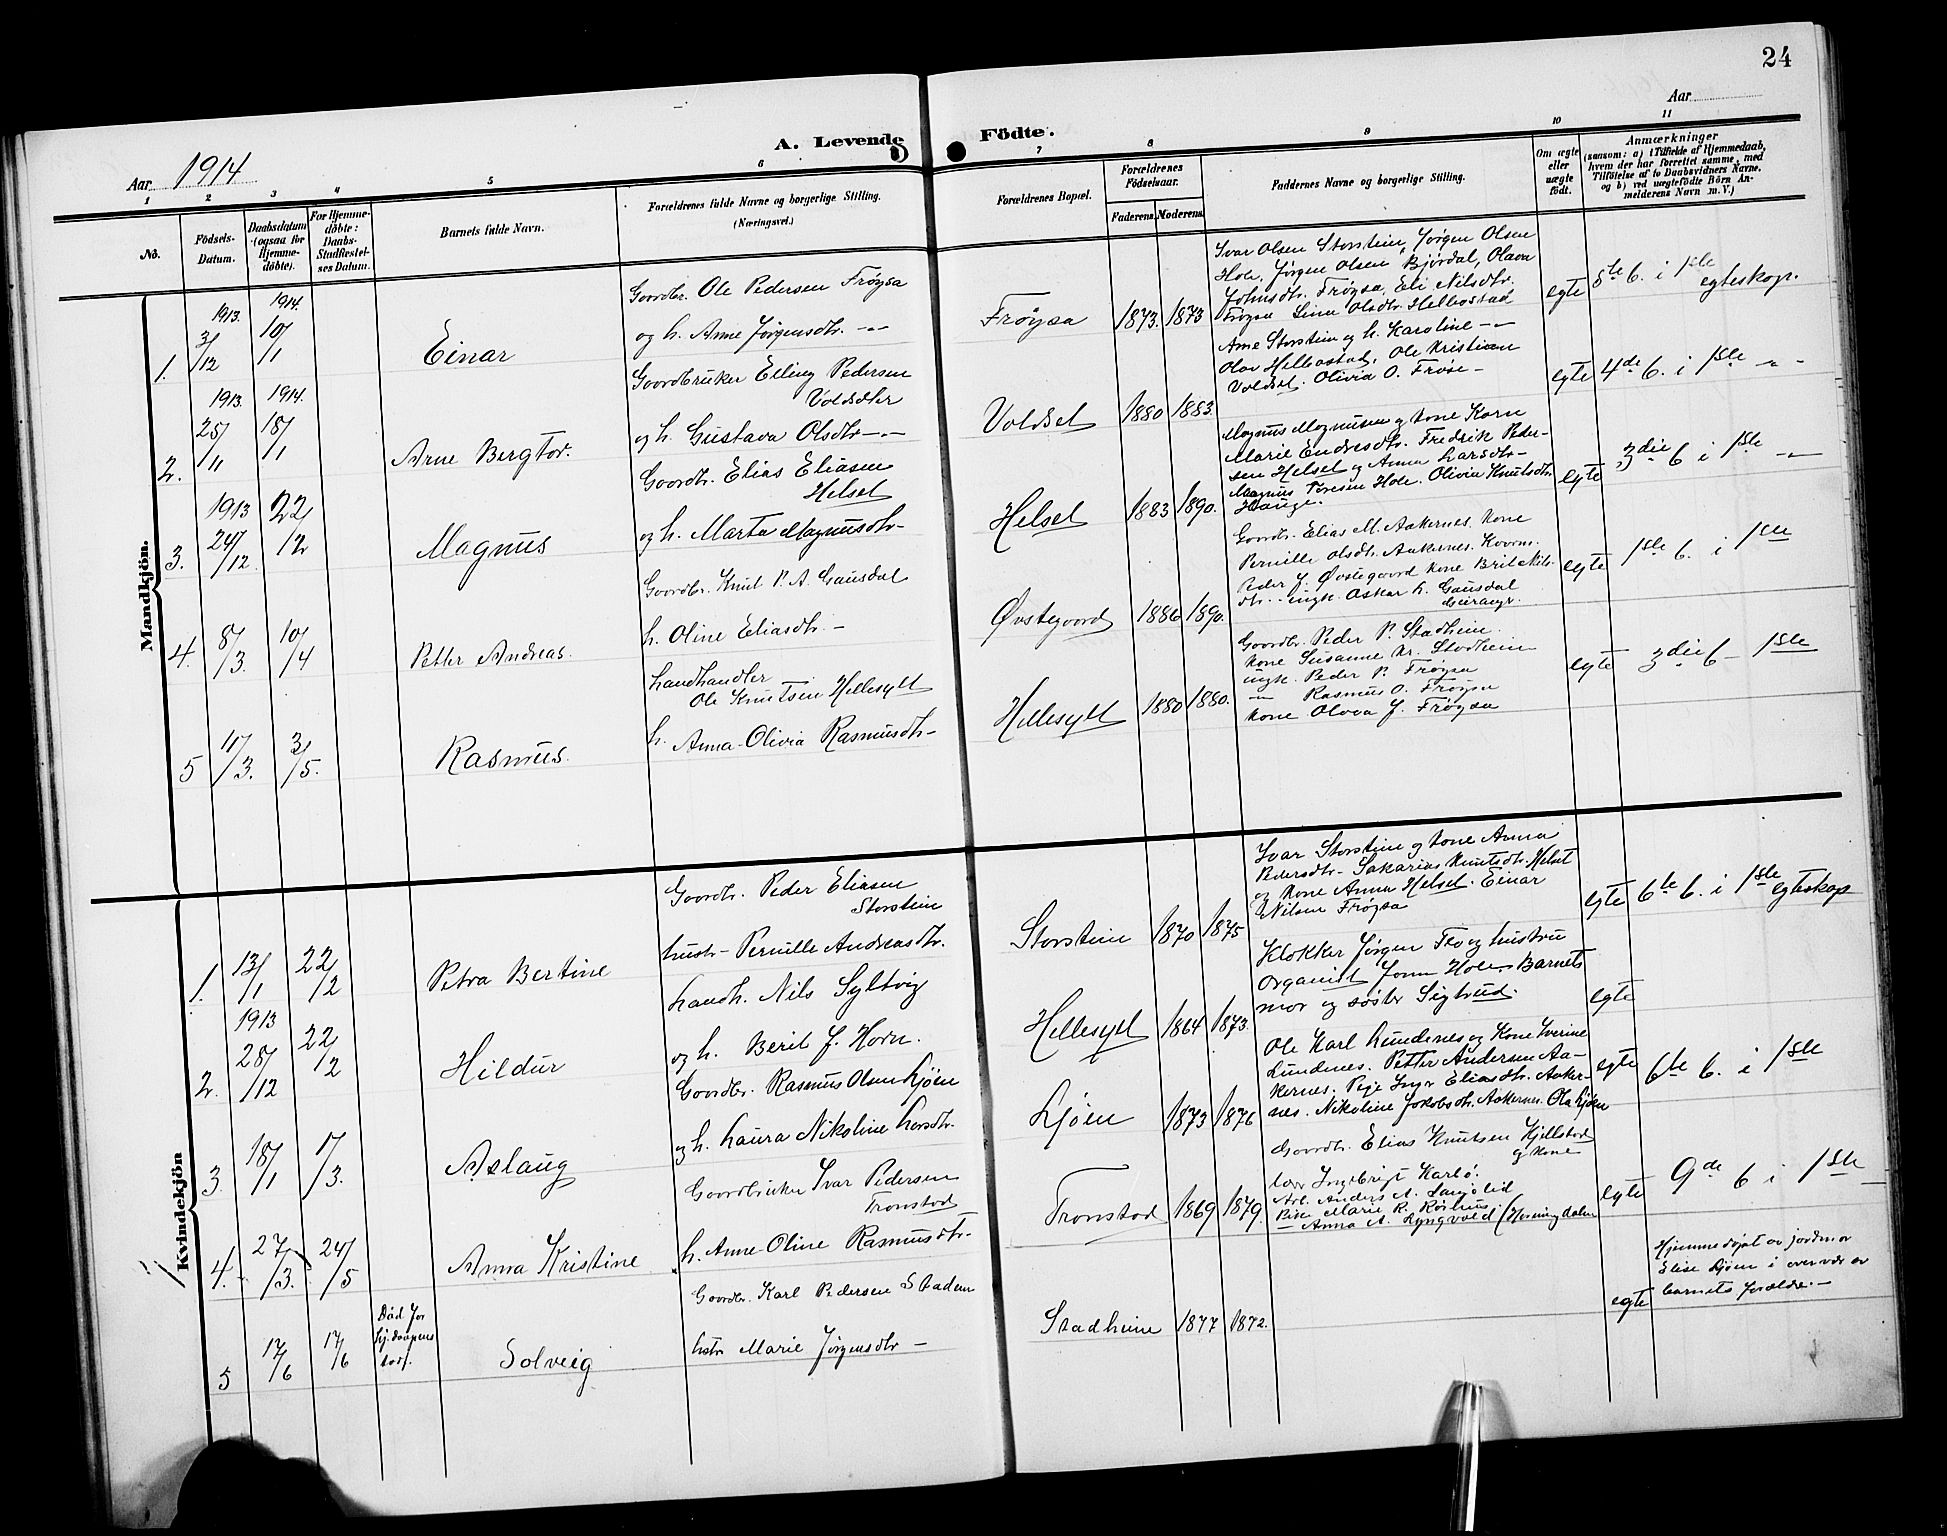 24
Aar
A. Levende Födte.
Aar 1914
1
2
3
4
5
6
7
8
9
10
11
No.
Födsels-
Datum.
Daabsdatum
(ogsaa for
Hjemme-
döbte).
For Hjemme-
döbte:
Daabs-
Stadfæstel-
ses Datum.
Barnets fulde Navn.
Forældrenes fulde Navne og borgerlige Stilling.
(Næringsvei.)
Forældrenes Bopæl.
Forældrenes
Födselsaar.
Faderens.
Moderens.
Faddernes Navne og borgerlige Stilling.
Om ægte
eller
uægte
födt.
Anmærkninger
(saasom: a) i Tilfælde af Hjemmedaab,
hvem der har forrettet samme, med
Tilföielse af to Daabsvidners Navne,
og b) ved uægtefödte Börn An-
melderens Navn m. V.)
Mandkjön.
1.
1913.
3/12
1914.
10/1
Einar
Gaardbr. Ole Pedersen Frøysa
og h. Anne Jørgensdtr. -"-
Frøysa
1873.
1873
Ivar Olsen Storstein, Jørgen Olsen
Hole, Jørgen Olsen Bjørdal, Olava
Johnsdtr. Frøysa, Eli Nilsdtr.
Frøysa Lina Olsdtr. Hellostad
egte
8te b. i 1ste
egteskap.
2.
1913.
25/11
1914.
18/1
Arne Bergtor.
Gaardbruker Elling Pedersen
Voldsæter
og h. Gustava Olsdtr -"-
Voldset
1880
1883.
Arne Storstein og h. Karoline -"-
Olav Hellostad, Ole Kristian
Voldset. Olivia O. Frøse -
egte
4de b. i 1ste -"-
3.
1913
24/12.
22/12
Magnus
Gaardbr. Elias Eliasen
Helset
og h. Marta Magnusdtr -
Helset
1883
1890.
Magnus Magnusen og kone Karn
Marie Endresdtr. Fredrik Peder-
sen Helset og Anna Larsdtr -
Magnus Toresen Hole. Olivia Knutsdtr.
Hauge.
egte
3die b i 1ste -"-
4.
8/3.
10/4
Petter Andreas.
Gaardbr. Knut P. A. Gausdal
h. Oline Eliasdtr. -
Østegaard
1886
1890.
Gaardbr. Elias M. Aakernes. kone
Pernille Olsdtr. Aakernes.
Peder J. Østegaard kone Brit Nils-
dtr. - ungk. Oskar L. Gausdal
Geiranger.
egte
1ste b. i 1ste
5
11/3.
3/5.
Rasmus.
Landhandler
Ole Knutsen Hellesylt
h. Anna-Olivia Rasmusdtr -
Hellesylt
1880
1880.
Gaardbr. Peder P. Stadheim.
kone Susanne Kr. Stadheim
ungk. Peder P. Frøysa
-"- Rasmus O. Frøysa
kone Olova J. Frøysa
egte
3die b - 1ste
Kvindekjön
1.
13/1
22/2
Petra Bertine
Gaardbr. Peder Eliasen
Storstein
hustr - Pernille Andreasdtr.
Storstein
1870
1875
Ivar Storstein og kone Anna
Pedersdtr - Sakarias Knutsdtr. Helset
og kone Anna Helset. Einar
Nilsen Frøysa
egte
6te b. i 1ste egteskap
2.
1913
28/12
22/2
Hildur
Landh. Nils Syltvig
og h. Berit J. Horn.
Hellesylt
1864
1873.
Klokker Jørgen Tvo og hustru
Organist Jonn Hole. Barnets
mor og søster Sigtrud.
egte
3.
18/1
1/3.
Aslaug
Gaardbr. Rasmus Olsen Ljøen
og h. Laura Nikoline Larsdtr.
Ljøen
1873
1876
Ole Karl Lundenes og Kone Iverine
Lundenes. Petter Andersen Aa-
kernes. Pige Inga Eliasdtr. Aaker-
nes. Nikoline Jakobsdtr. Aakernes. Ola Ljøen
egte
6te b. i 1ste
4.
27/3.
24/5
Anna Kristine
Gaardbruker Ivar Pedersen
Tronstad
h. Anne-Oline Rasmusdtr -
Tronstad
1869
1879.
Gaardbr. Elias Knutsen Kjellstad
og kone
Lærer Ingebrigt Karlø.
Arb. Anders A. Langlid
Pike Marie R. Røshus
- Anna A. Ryngvold (Horningdalen
egte
9de b i 1ste
5
17/6
17/6
Død før
Solveig
Gaardbr. Karl Pedersen Stadem
hstr Marie Jørgensdtr -
Stadheim
1877
1872.
egte
Hjemmedøpt av jordmor
Elise Ljøen i overvær av
barnets forældre. -